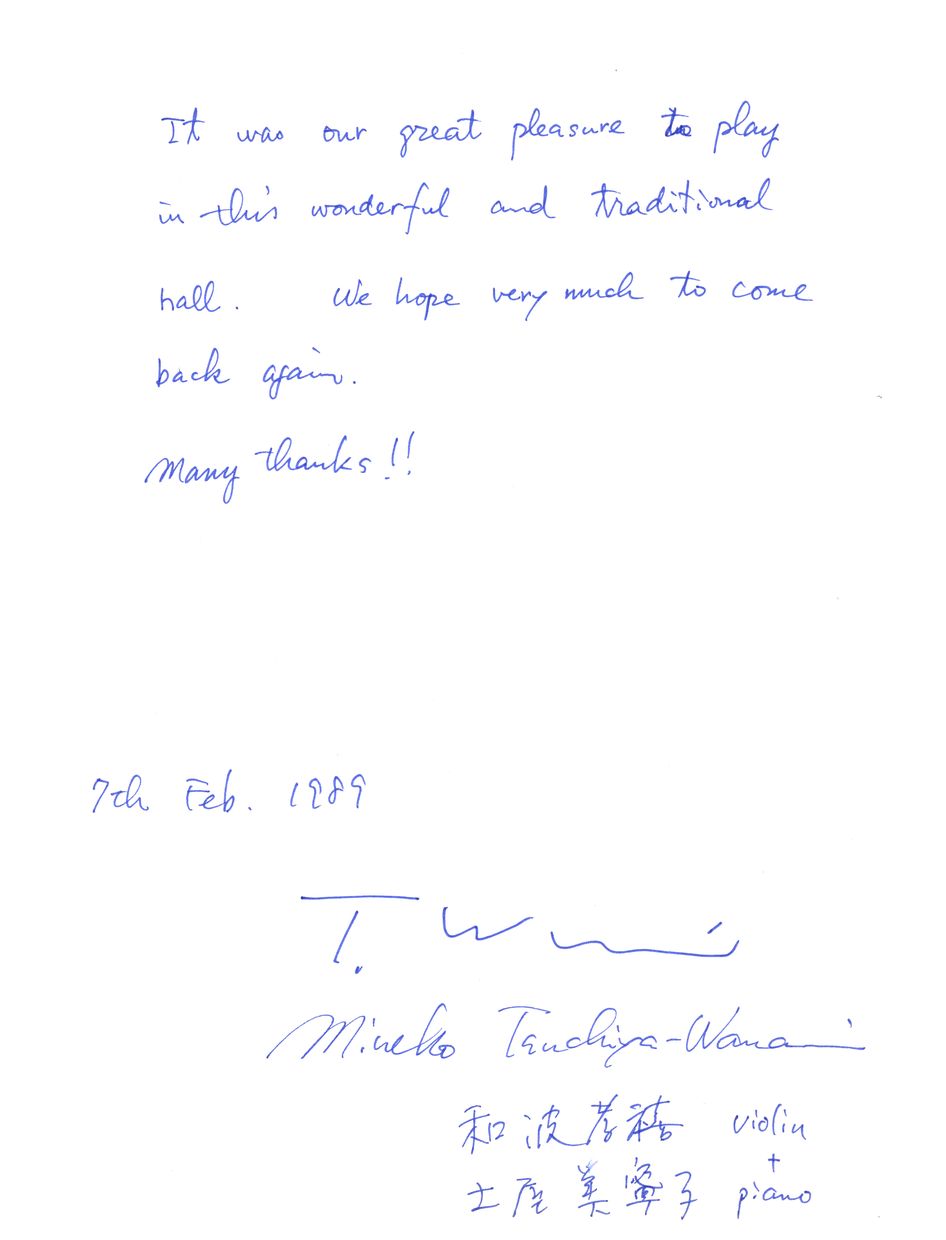 It was our great pleasure to play
in this wonderful and traditional
hall. We hope very much to come
back again.
Many thanks!!
7th Feb. 1989
T. Wanami
Mineko Tsuchiya-Wanami
和波孝禧 violin
+
土屋美寧子 piano